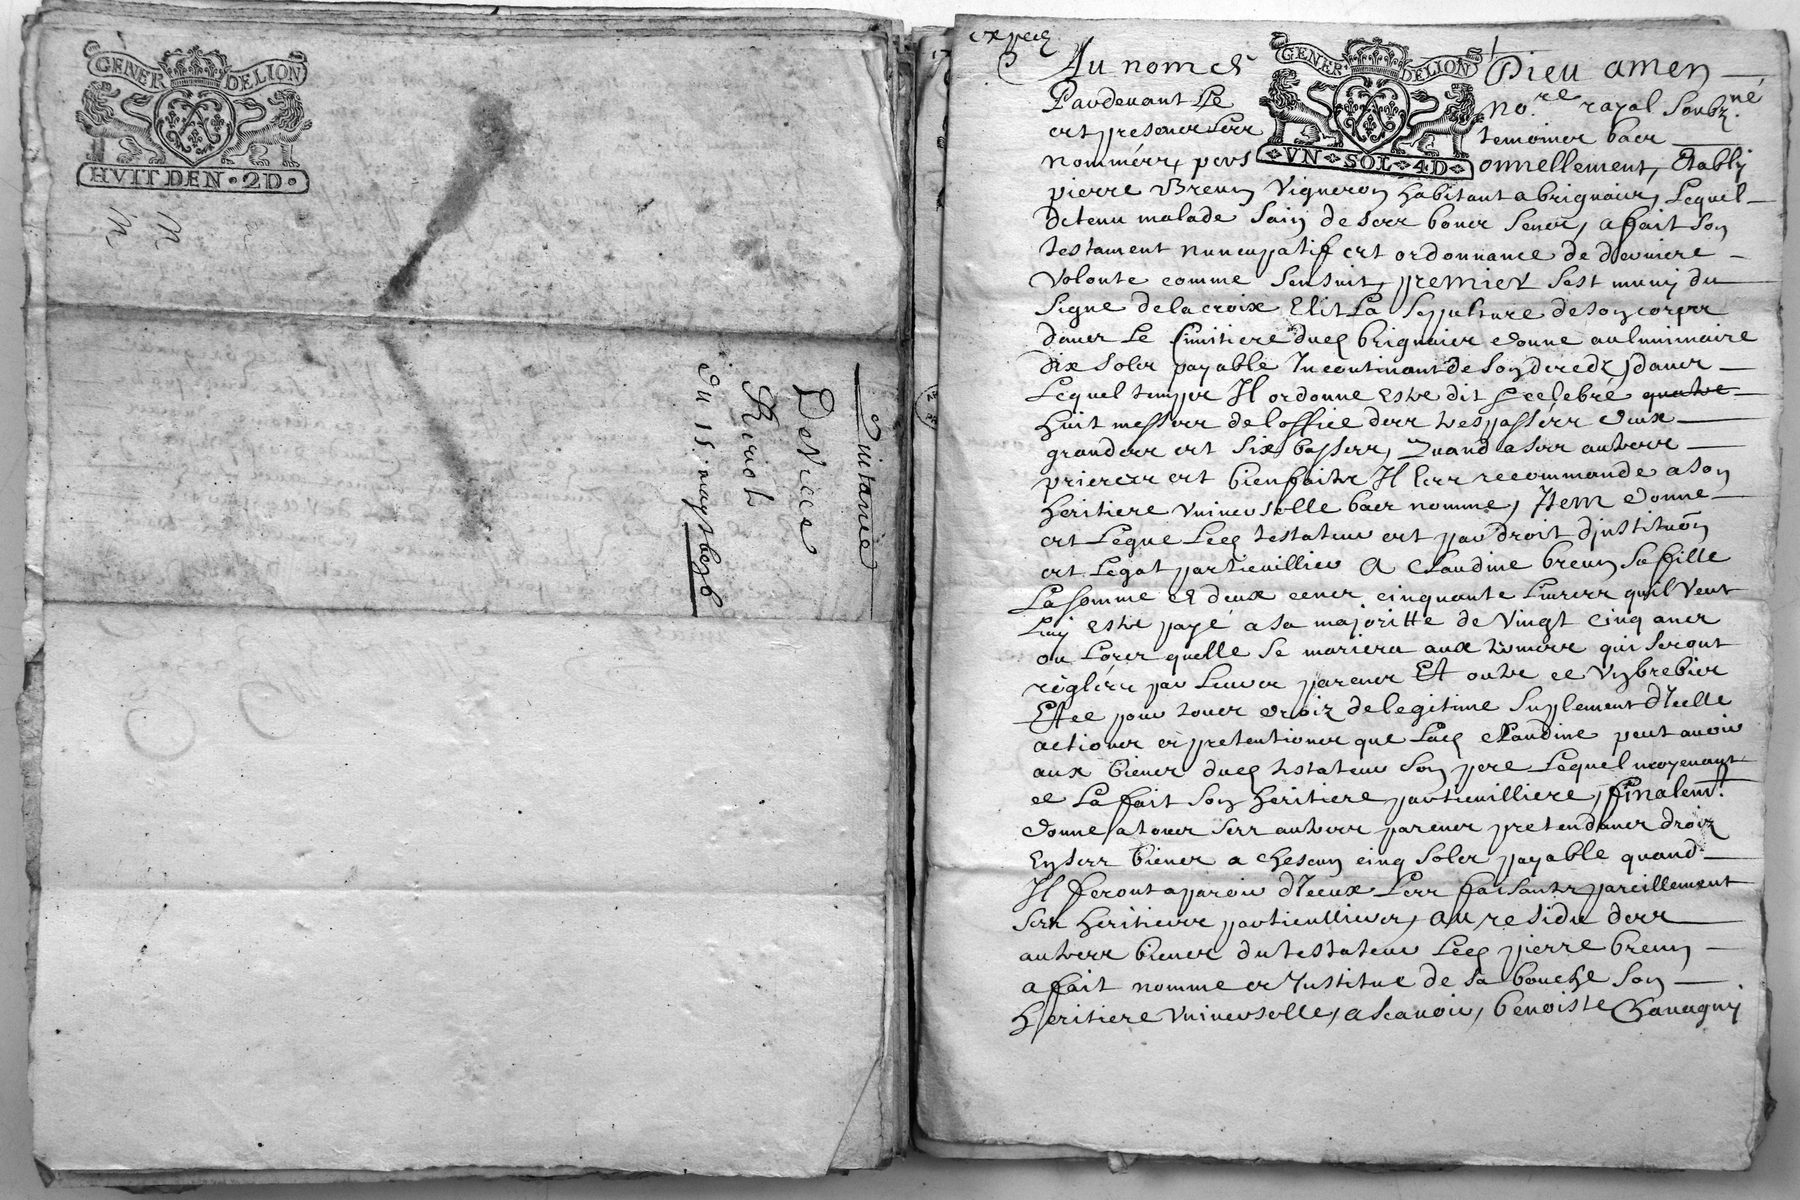 GENER DELION
HVIT DEN · 2D ·
Quitance
DeVicce
du 15: may
expeé
GENER DELION
VN SOL 4D
Au nom de Dieu amen
Pardevant Le no.re rayal soubz.né
et presencer Ser temoincr bacr
nommérr, personnellement, Etably
pierre Breun Vigneron habitant a brignair, Lequel
detenu malade Sain de serr boner sencr, a fait son
testament nuncupatif ert ordonnance de derniere
Volonte comme Sensuit, premier sest muny du
Signe de la croix Elit La Sepulture de son corprr
dancr Le Cimitiere dueq brignaier donne au luminaire
dix Soler payable Incontinant de son deredz, dancr
Lequel temper Il ordonne Estre dit & celebré quatre
huit messerr de loffice derr trespasserr deux
granderr ert Six basserr, Quand a serr autrerr
priererr ert bienfaitr Il Lerr recommande a son
heritiere Vniuerselle bacr nommé, Item donne
ert Legue Leq testateur ert par droit djnstituõn
ert Legat particuillier A Claudine breun Sa fille
La Somme de deux cener cinquante Liurerr quil Veut
Luy estre payé a sa majoritte de Vingt cinq aner
ou Lorcr quelle Se mariera aux termerr qui Seront
réglérr par Leurcr parencr Et outre ce Vn brebier
Et ce pour toucr droiz de legitime Suplement dIcelle
actioner er pretentioner que Laq Claudine peut auoir
aux biencr dueq testateur Son pere Lequel moyenant
ce La fait Son heritiere particuilliere, finalemt.
donne a toucr Serr autrerr parencr pretendancr droiz
En Serr biencr a chescun cinq Soler payable quand
Il Seront aparoir dIceux Lerr faisantr pareillement
Serr heritierr particulliercr, au residu derr
autrerr biencr du testateur Leq pierre breun
a fait nomme er Institue de Sa bouche Son
heritiere Vniuerselle, a Scauoir, benoiste Chauagny